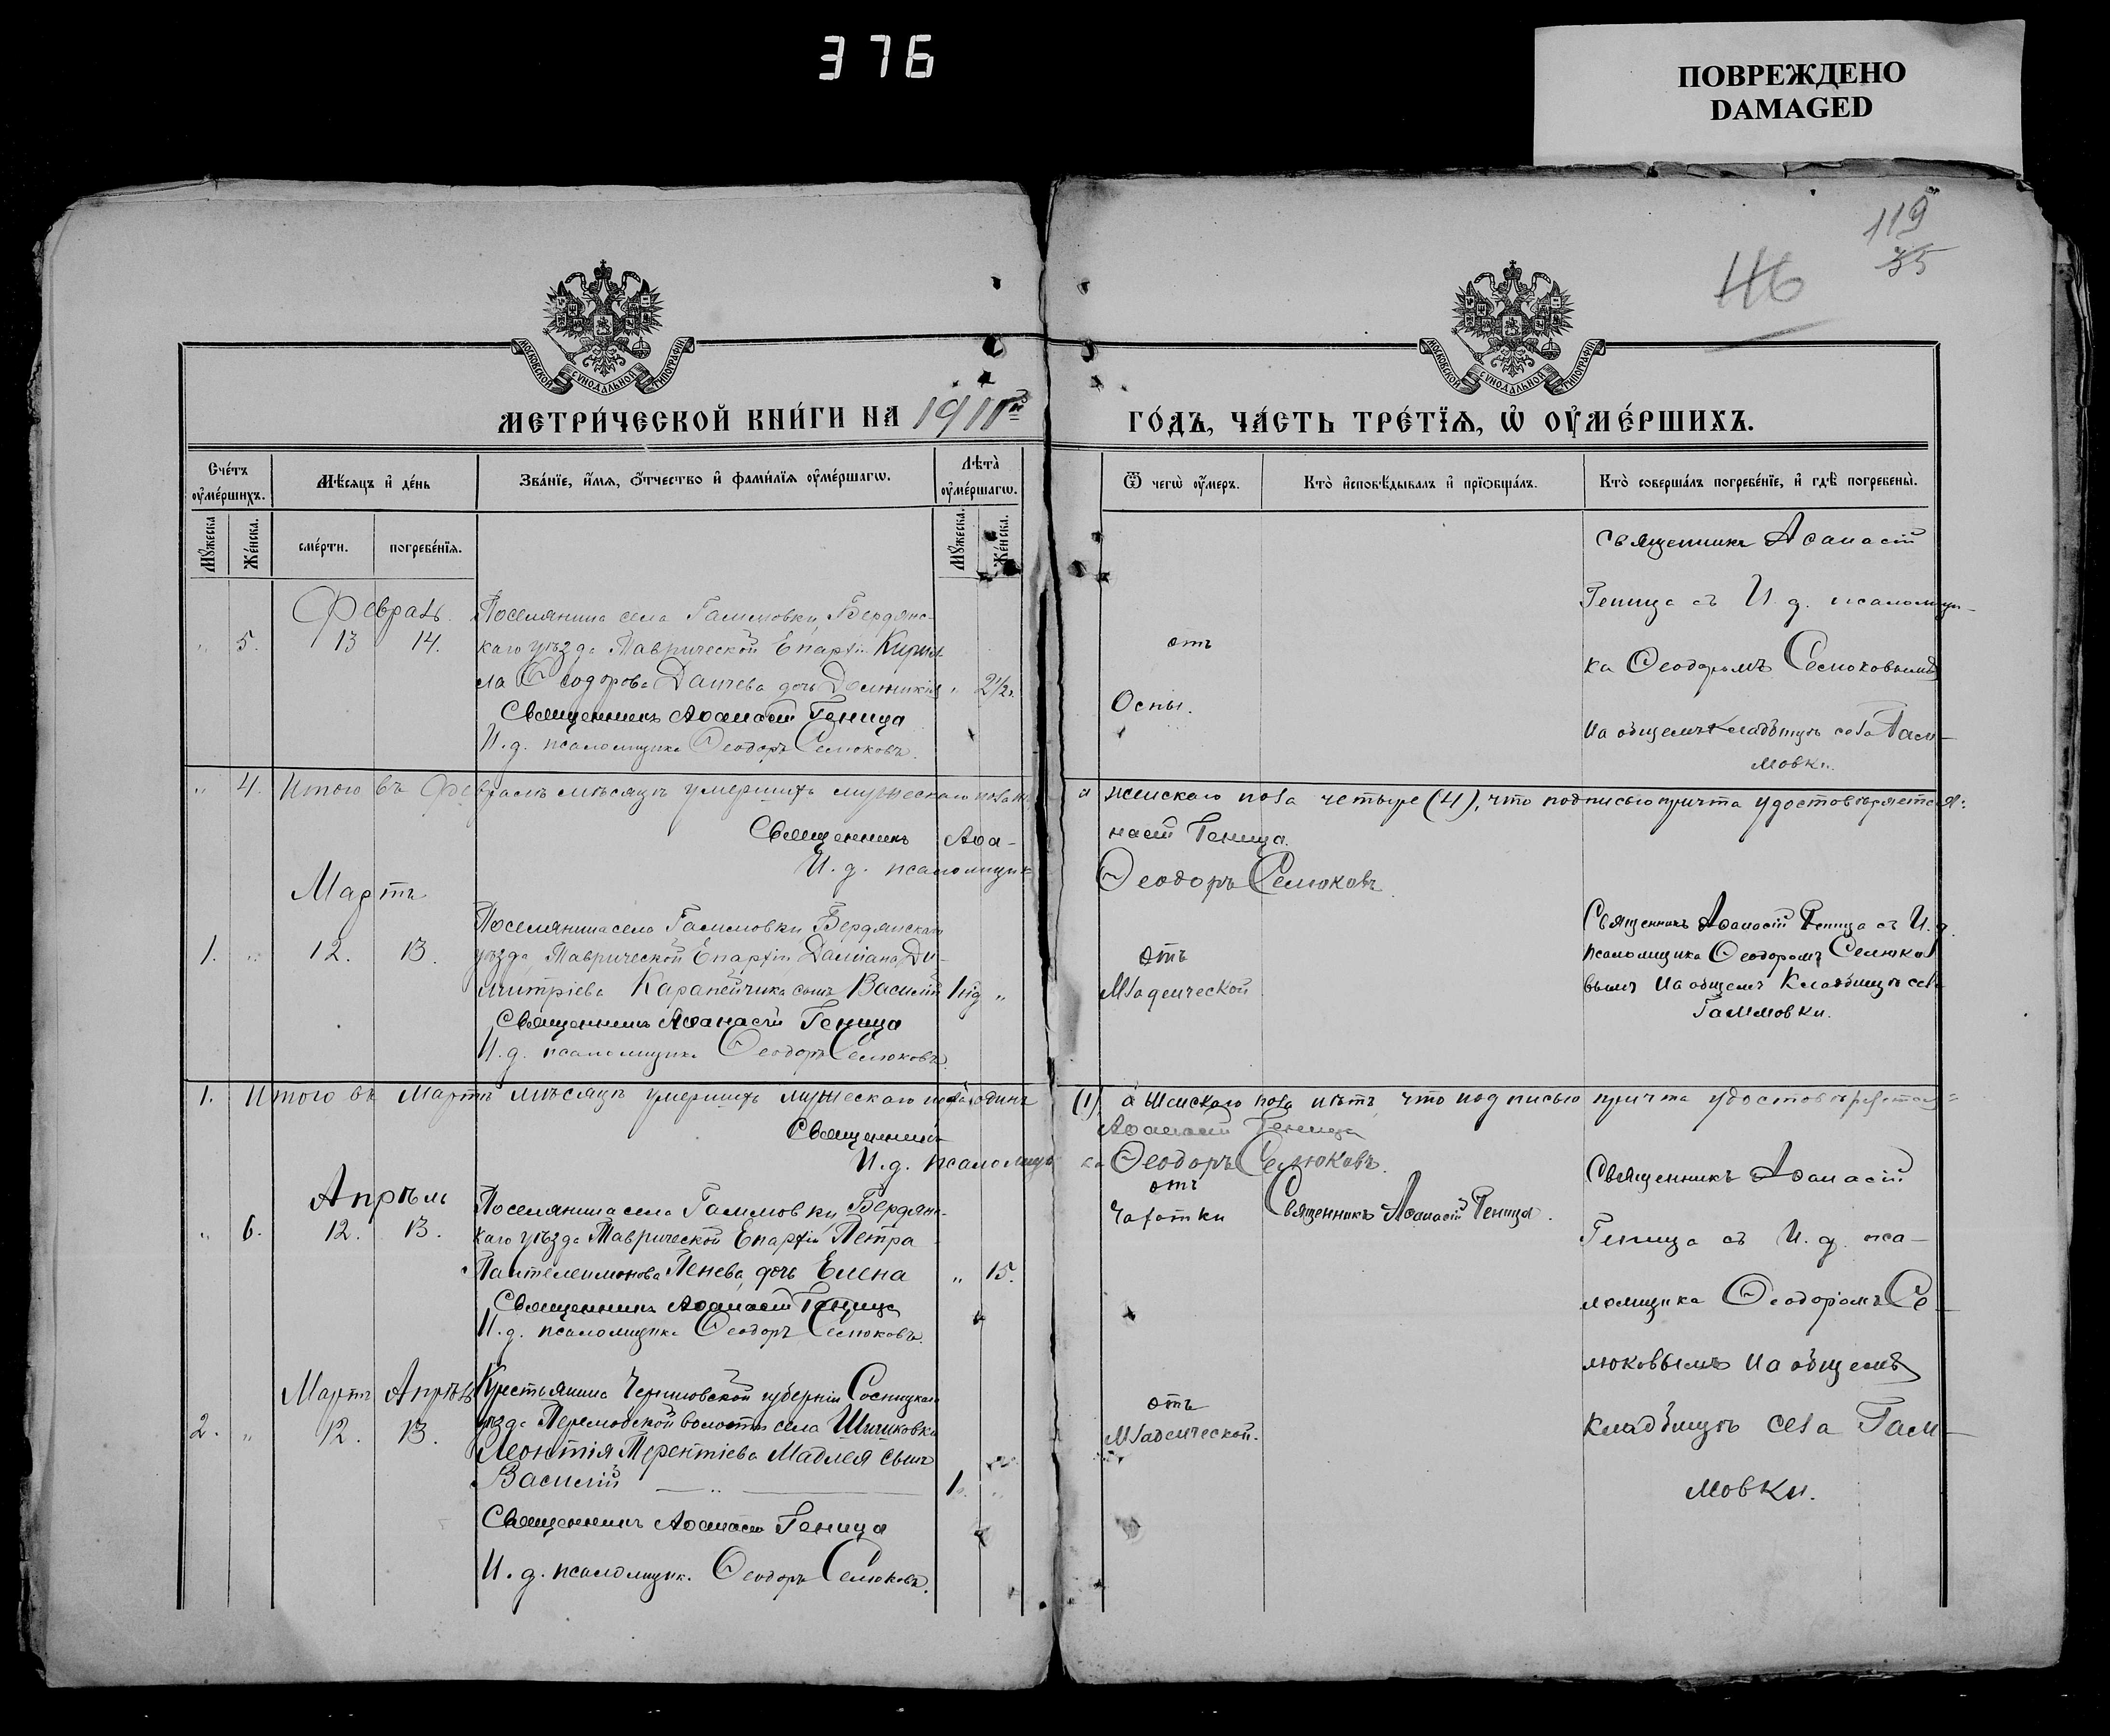 376
ПОВРЕЖДЕНО
DAMAGED
119
35
46
МОСКОВСКОЙ СѴНОДАЛЬНОЙ ТИПОГРАФІИ
МОСКОВСКОЙ СѴНОДАЛЬНОЙ ТИПОГРАФІИ
МЕТРИ́ЧЕСКОЙ КНИ́ГИ НА 1911й ГО́ДЪ, ЧА́СТЬ ТРЕ́ТЇѦ, Ѡ҆ ОУ҆МЕ́РШИХЪ.
Сче́тъ оу҆ме́ршихъ.
Мꙋ́жеска
Же́нска.
Мѣ́сѧцъ и҆ де́нь
сме́рти.
погребе́нїѧ.
Зва́нїе, и҆́мѧ, ѻ҆́тчество и҆ фами́лїѧ оу҆ме́ршагѡ.
Лѣта̀ оу҆ме́ршагѡ.
Мꙋ́жеска.
Же́нска.
Ѿ чегѡ̀ оу҆́меръ.
Кто̀ и҆сповѣ́дывалъ и҆ прїѻбща́лъ.
Кто̀ соверша́лъ погребе́нїе, и҆ гдѣ̀ погребены̀.
Февраль.
" 5. 13 14.
Поселянина села Гаммовки, Бердянс-
каго уѣзда Таврической Епархіи Кирил-
ла Ѳеодорова Данчева дочь Домникія " 2½.
Священникъ Аѳанасій Геница
И. д. псаломщика Ѳеодоръ Селюковъ.
отъ
Оспы.
Священникъ Аѳанасій
Геница съ И. д. псаломщи-
ка Ѳеодоромъ Селюковымъ
На общемъ кладбищѣ села Гам-
мовки.
" 4. Итого въ Февралѣ мѣсяцѣ умершихъ мужескаго пола а женскаго пола четыре (4), что подписью причта удостовѣряется:
Священникъ Аѳа-
насій Геница.
И. д. псаломщика
Ѳеодоръ Селюковъ
Мартъ
1. " 12. 13.
Поселянина села Гаммовки Бердянскаго
уѣзда, Таврической Епархіи Даміана Ди-
митріева Карапейчика сынъ Василій "
Священникъ Аѳанасій Геница
И. д. псаломщика Ѳеодоръ Селюковъ.
отъ
Младенческой
Священникъ Аѳанасій Геница съ И. д.
псаломщика Ѳеодоромъ Селюко-
вымъ На общемъ Кладбищѣ села
Гаммовки.
1. Итого въ Мартѣ мѣсяцѣ умершихъ мужескаго пола одинъ (1) а женскаго пола нѣтъ, что подписью причта удостовѣряется:
Священникъ
Аѳанасій Геница
И. д. псаломщика Ѳеодоръ Селюковъ.
Апрѣль
" 6. 12. 13.
Поселянина села Гаммовки, Бердянс-
каго уѣзда Таврической Епархіи Петра
Пантелеимонова Пенева, дочь Елена " 15.
Священникъ Аѳанасій Геница
И. д. псаломщика Ѳеодоръ Селюковъ.
отъ
Чахотки
Священникъ Аѳанасій Геница.
Священникъ Аѳанасій
Геница съ И. д. пса-
ломщика Ѳеодоромъ Се-
люковымъ На общемъ
кладбищѣ села Гам-
мовки.
Мартъ Апрѣль
2. " 12. 13.
Крестьянина Черниговской губерніи Сосницкаго
уѣзда волости села
Леонтія Терентіева Мадлея сынъ
Василій 1. "
отъ
Младенческой.
Священникъ Аѳанасій Геница
И. д. псаломщик. Ѳеодоръ Селюковъ.